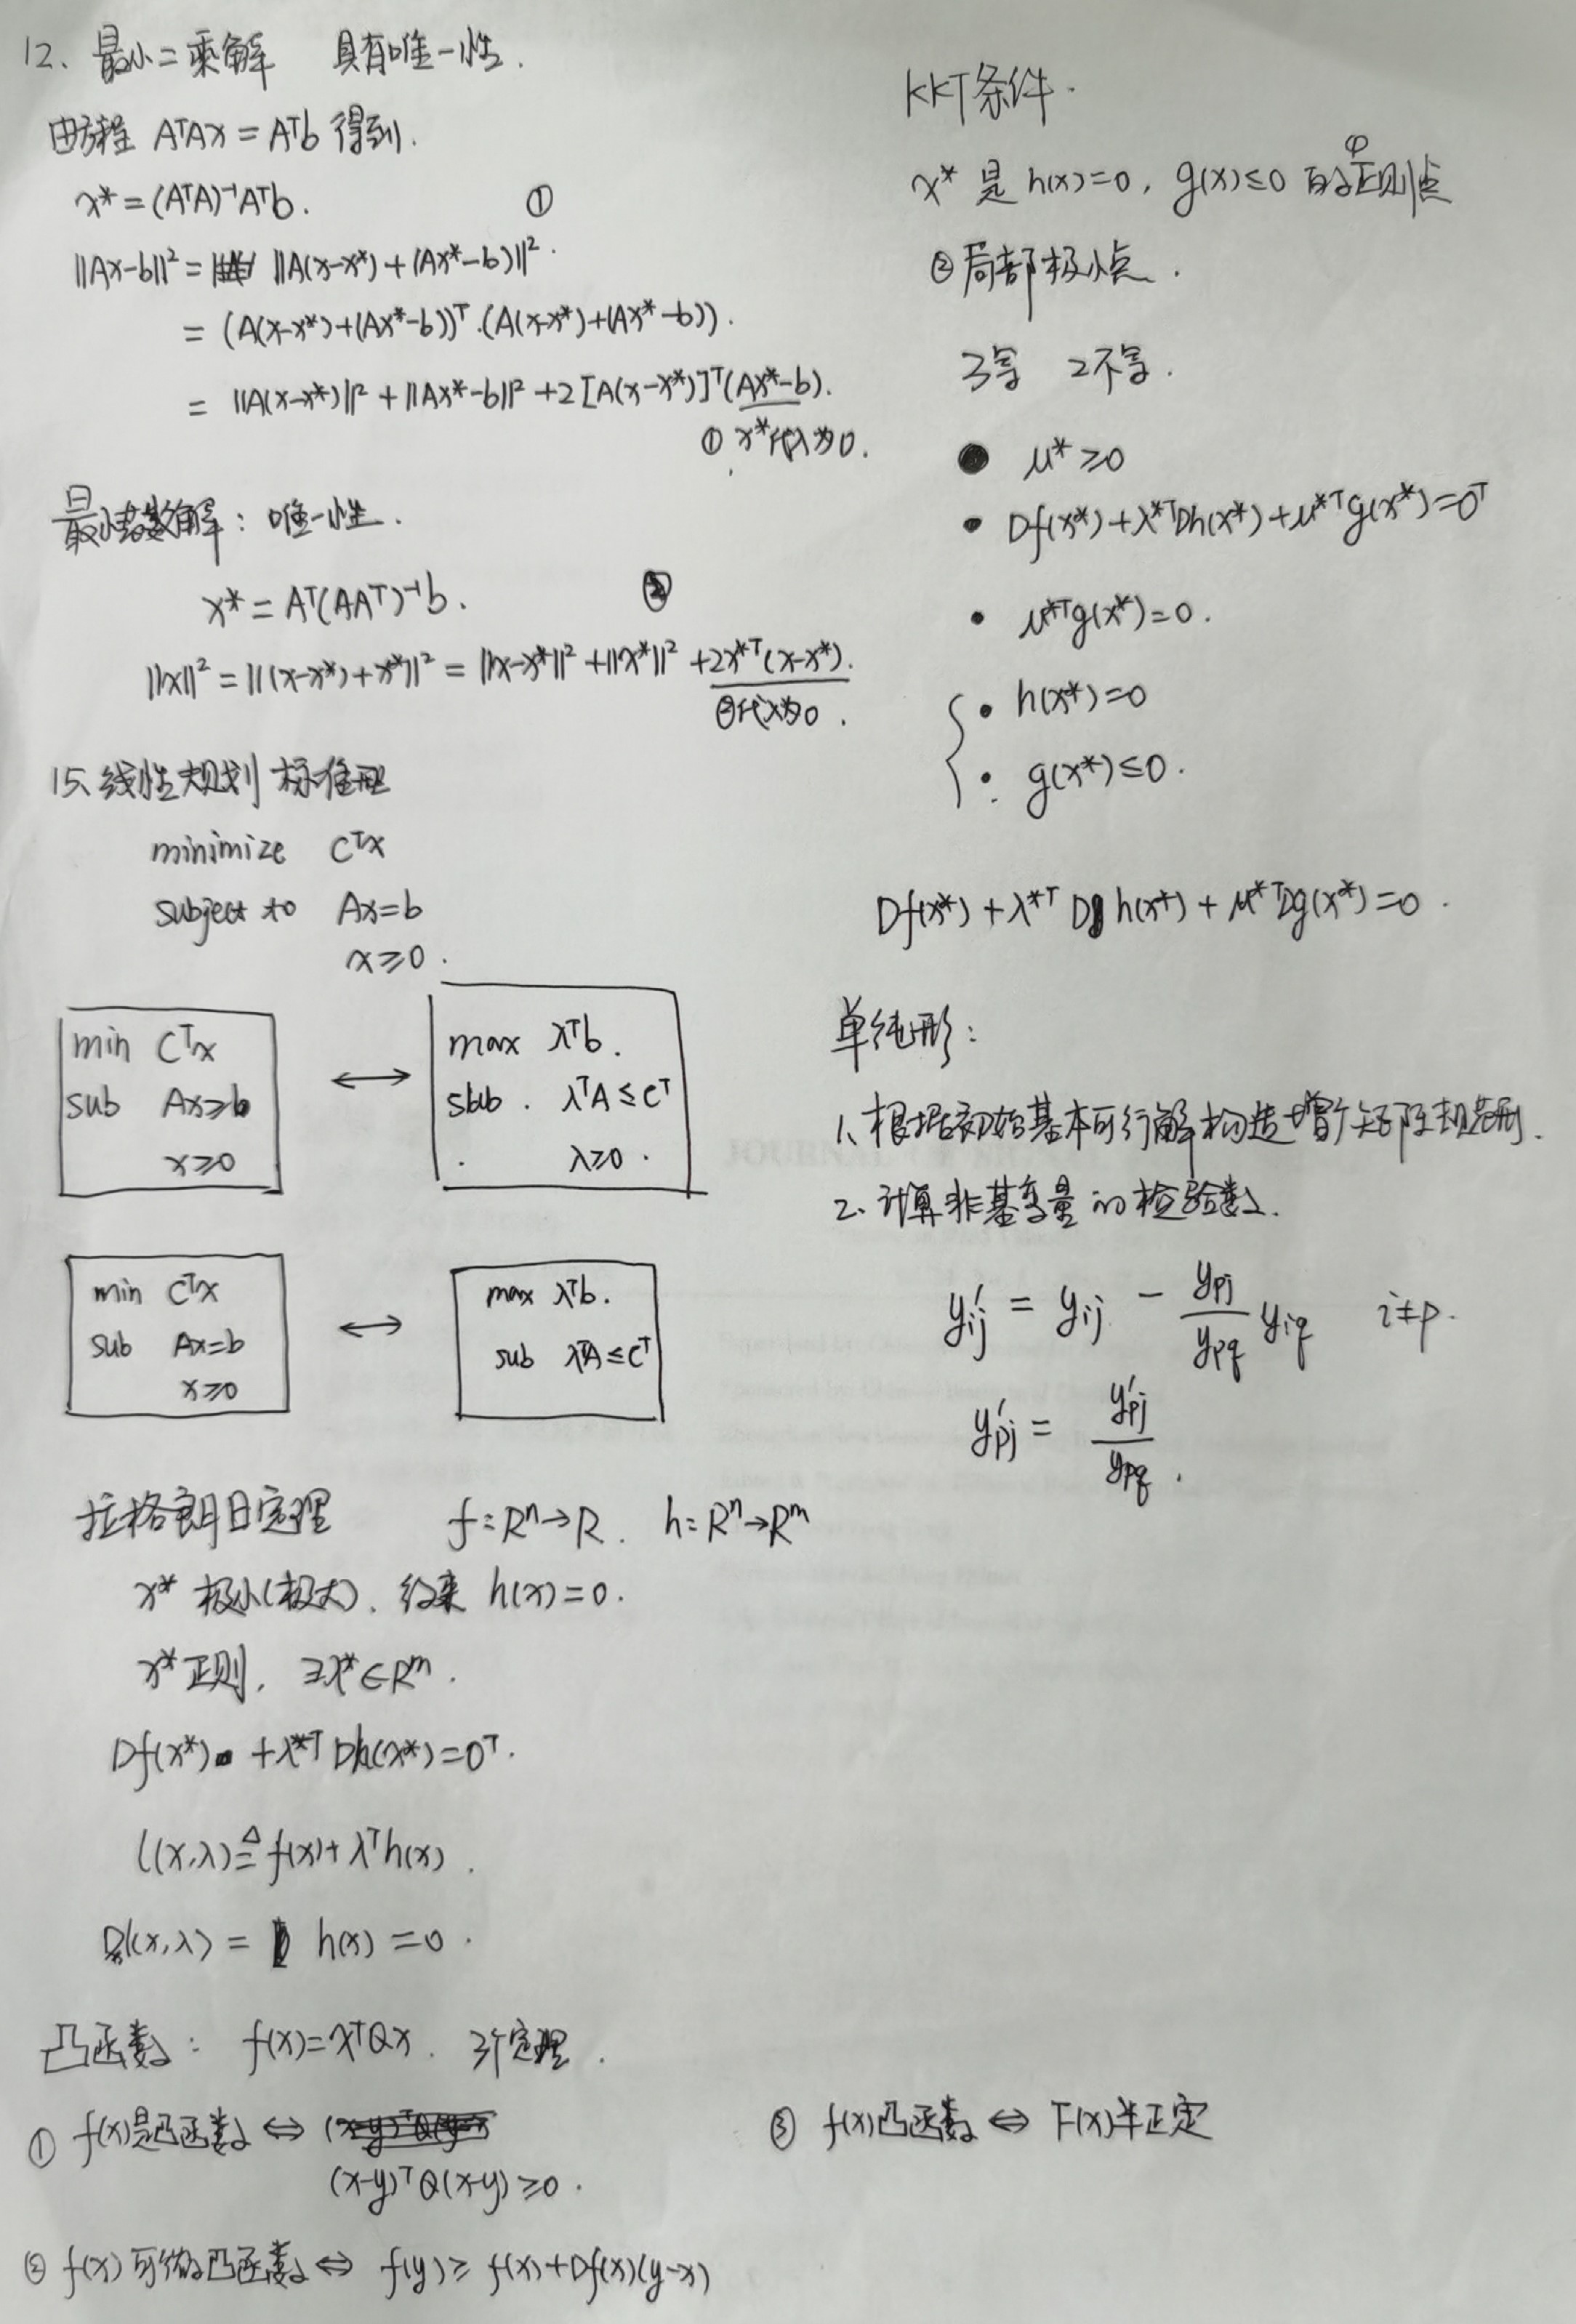 12、最小二乘解 具有唯一性.
由方程 AᵀAx = Aᵀb 得到.
x* = (AᵀA)⁻¹Aᵀb. ①
‖Ax-b‖² = ‖A(x-x*)+(Ax*-b)‖².
= (A(x-x*)+(Ax*-b))ᵀ.(A(x-x*)+(Ax*-b)).
= ‖A(x-x*)‖² + ‖Ax*-b‖² + 2[A(x-x*)]ᵀ(Ax*-b).
① x*代入为0.
最小范数解: 唯一性.
x* = Aᵀ(AAᵀ)⁻¹b. ②
‖x‖² = ‖(x-x*)+x*‖² = ‖x-x*‖² + ‖x*‖² + 2x*ᵀ(x-x*).
②代入为0.
15、线性规划标准型
minimize Cᵀx
subject to Ax=b
x≥0.
min Cᵀx
sub Ax≥b
x≥0
↔
max λᵀb.
sbub. λᵀA ≤ Cᵀ
λ≥0.
min Cᵀx
sub Ax=b
x≥0
↔
max λᵀb.
sub λᵀA ≤ Cᵀ
拉格朗日定理 f: Rⁿ→R. h: Rⁿ→Rᵐ
x* 极小(极大)、约束 h(x)=0.
x* 正则, ∃λ*∈Rᵐ.
Df(x*) + λ*ᵀDh(x*) = 0ᵀ.
l(x,λ) ≜ f(x)+λᵀh(x).
Dl(x,λ) = h(x) = 0.
凸函数: f(x)=xᵀQx. 3个定理.
① f(x)是凸函数 ⇔
(x-y)ᵀQ(x-y) ≥0.
② f(x)可微凸函数 ⇔ f(y) ≥ f(x)+Df(x)(y-x)
③ f(x)凸函数 ⇔ F(x)半正定
KKT条件.
x* 是 h(x)=0, g(x)≤0 的①正则点
②局部极小点.
3等 2不等.
• μ* ≥0
• Df(x*)+λ*ᵀDh(x*)+μ*ᵀg(x*)=0ᵀ
• μ*ᵀg(x*)=0.
• h(x*)=0
• g(x*)≤0.
Df(x*) + λ*ᵀ D h(x*) + μ*ᵀDg(x*) = 0.
单纯形:
1、根据初始基本可行解构造增广矩阵规范型.
2、计算非基变量的检验数.
y'ij = yij - ypj/ypq yiq i≠p.
y'pj = y'pj/ypq.